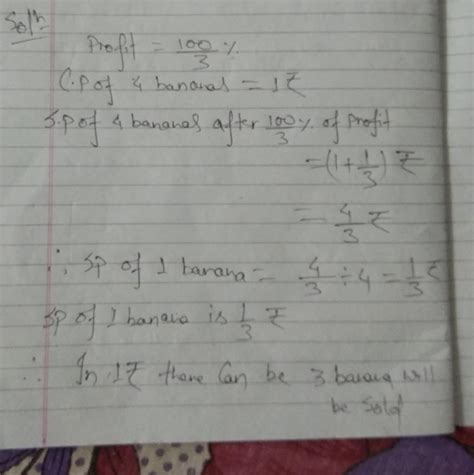 Solⁿ
Profit = 100/3 %
C.P of 4 bananas = 1₹
S.P of 4 bananas after 100/3 % of profit
= (1 + 1/3) ₹
= 4/3 ₹
∴ SP of 1 banana = 4/3 ÷ 4 = 1/3 ₹
SP of 1 banana is 1/3 ₹
∴ In 1₹ there can be 3 banana will
be sold